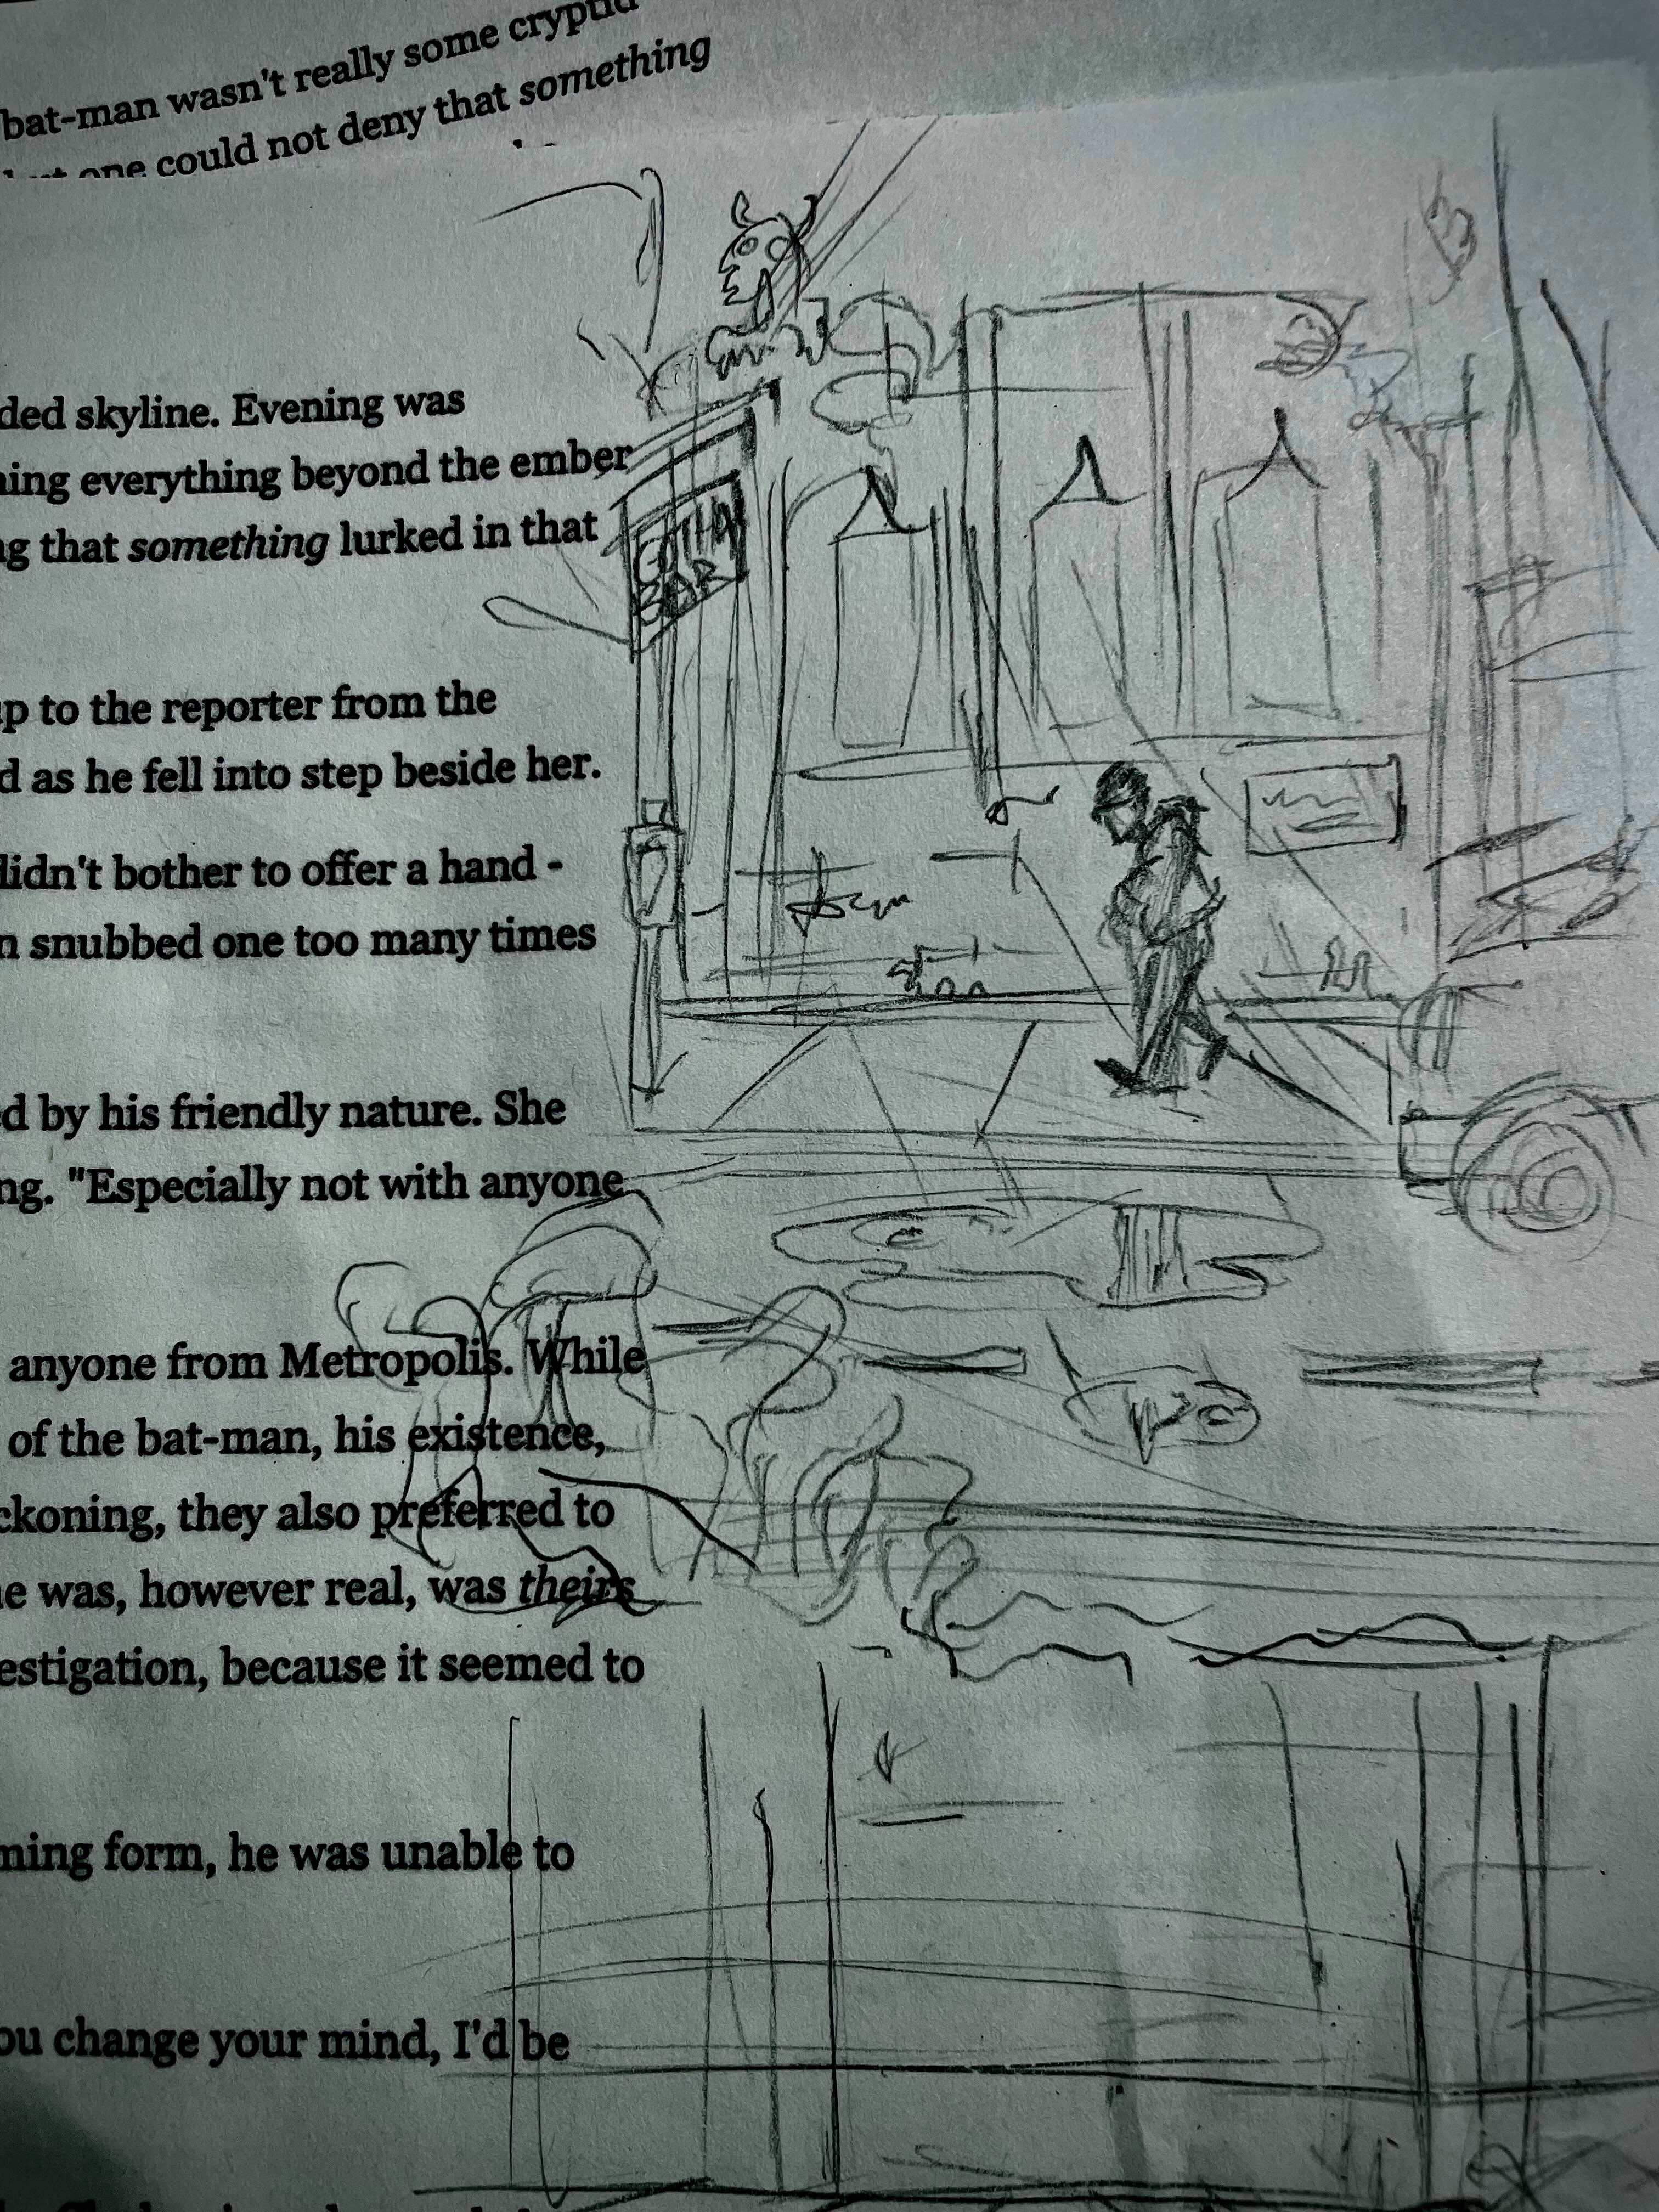 bat-man wasn't really some cryptid
one could not deny that something
ded skyline. Evening was
ing everything beyond the ember
g that something lurked in that
BAR
up to the reporter from the
d as he fell into step beside her.
didn't bother to offer a hand -
n snubbed one too many times
ed by his friendly nature. She
ng. "Especially not with anyone
anyone from Metropolis. While
of the bat-man, his existence,
ckoning, they also preferred to
e was, however real, was theirs
estigation, because it seemed to
ming form, he was unable to
ou change your mind, I'd be